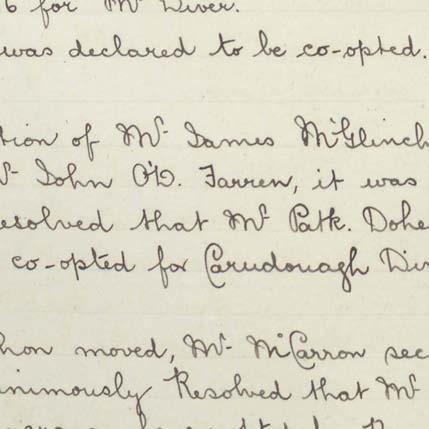 6 for Mr Diver.
was declared to be co-opted.
tion of Mr James McGlinch
r John O'D. Farren, it was
esolved that Mr Patk. Dohe
co-opted for Carndonagh Div
hon moved, Mr McCarron sec
nimously Resolved that Mr